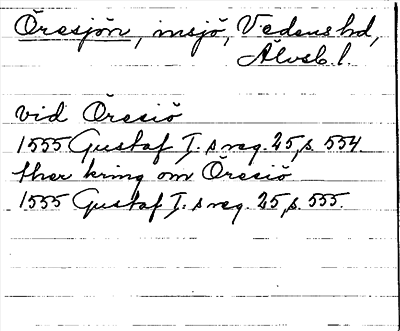 Öresjön, insjö, Vedens hd,
Älvsb. l.
vid Öresiö
1555 Gustaf I:s reg. 25, s. 554.
ther kring om Öresiö
1555 Gustaf I:s reg. 25, s. 555.